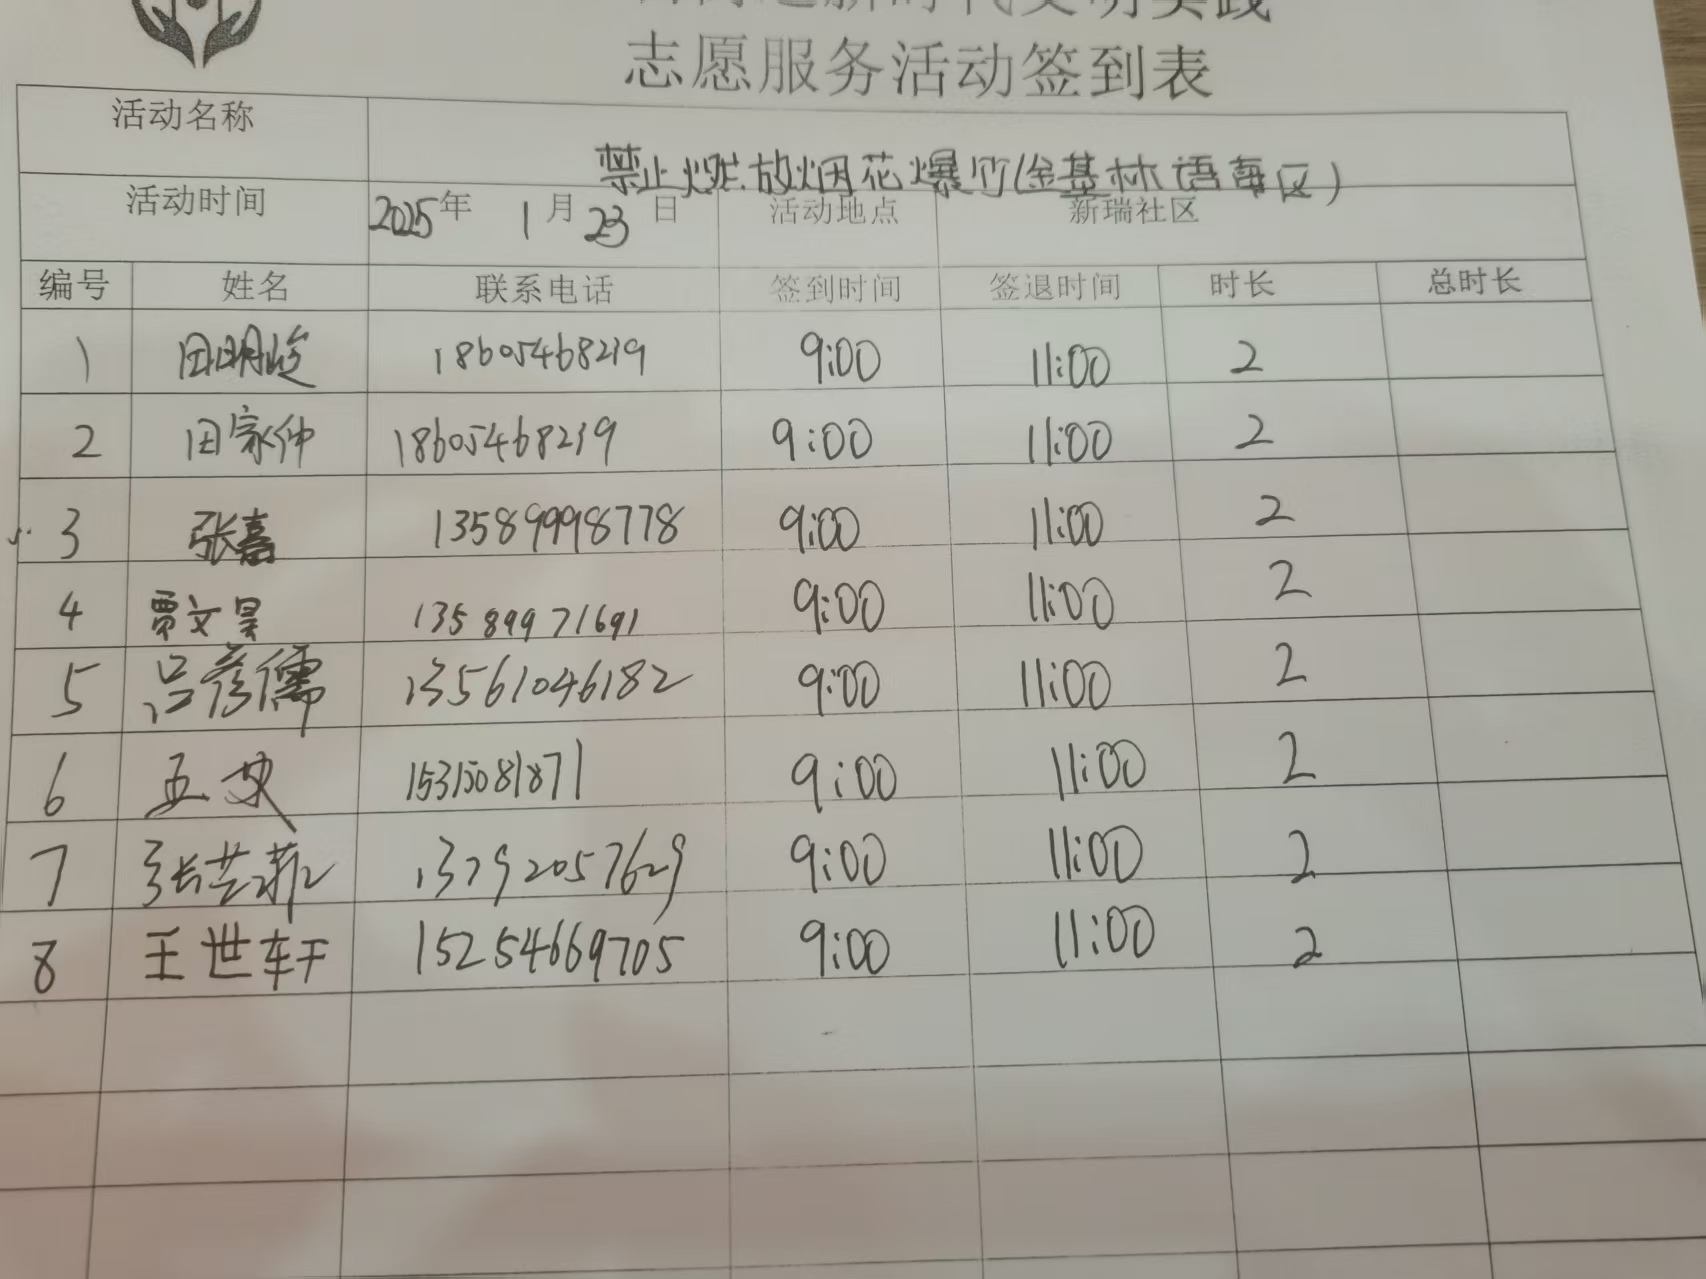 新时代文明实践
志愿服务活动签到表
活动名称 禁止燃放烟花爆竹(金基林语东区)
活动时间 2025年 1月 23日 活动地点 新瑞社区
编号 姓名 联系电话 签到时间 签退时间 时长 总时长
1 田明峻 18605468219 9:00 11:00 2
2 田家仲 18605468219 9:00 11:00 2
3 张嘉 13589998778 9:00 11:00 2
4 贾文昊 13589971691 9:00 11:00 2
5 吕彦儒 13561046182 9:00 11:00 2
6 9:00 11:00 2
7 张芸菲 13792057629 9:00 11:00 2
8 王世轩 15254669705 9:00 11:00 2